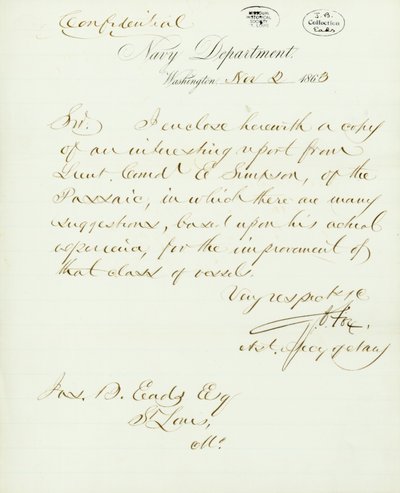 Confidential
MISSOURI HISTORICAL SOCIETY
J. B. Eads Collection
Navy Department.
Washington Nov 2 1863
Sir. I enclose herewith a copy
of an interesting report from
Lieut. Comdr E Simpson, of the
Passaic, in which there are many
suggestions, based upon his actual
experience, for the improvement of
that class of vessels.
Very respectf
G. V. Fox.
Asst. Secy of Navy
Jas. B. Eads Esq
St Louis,
Mo.